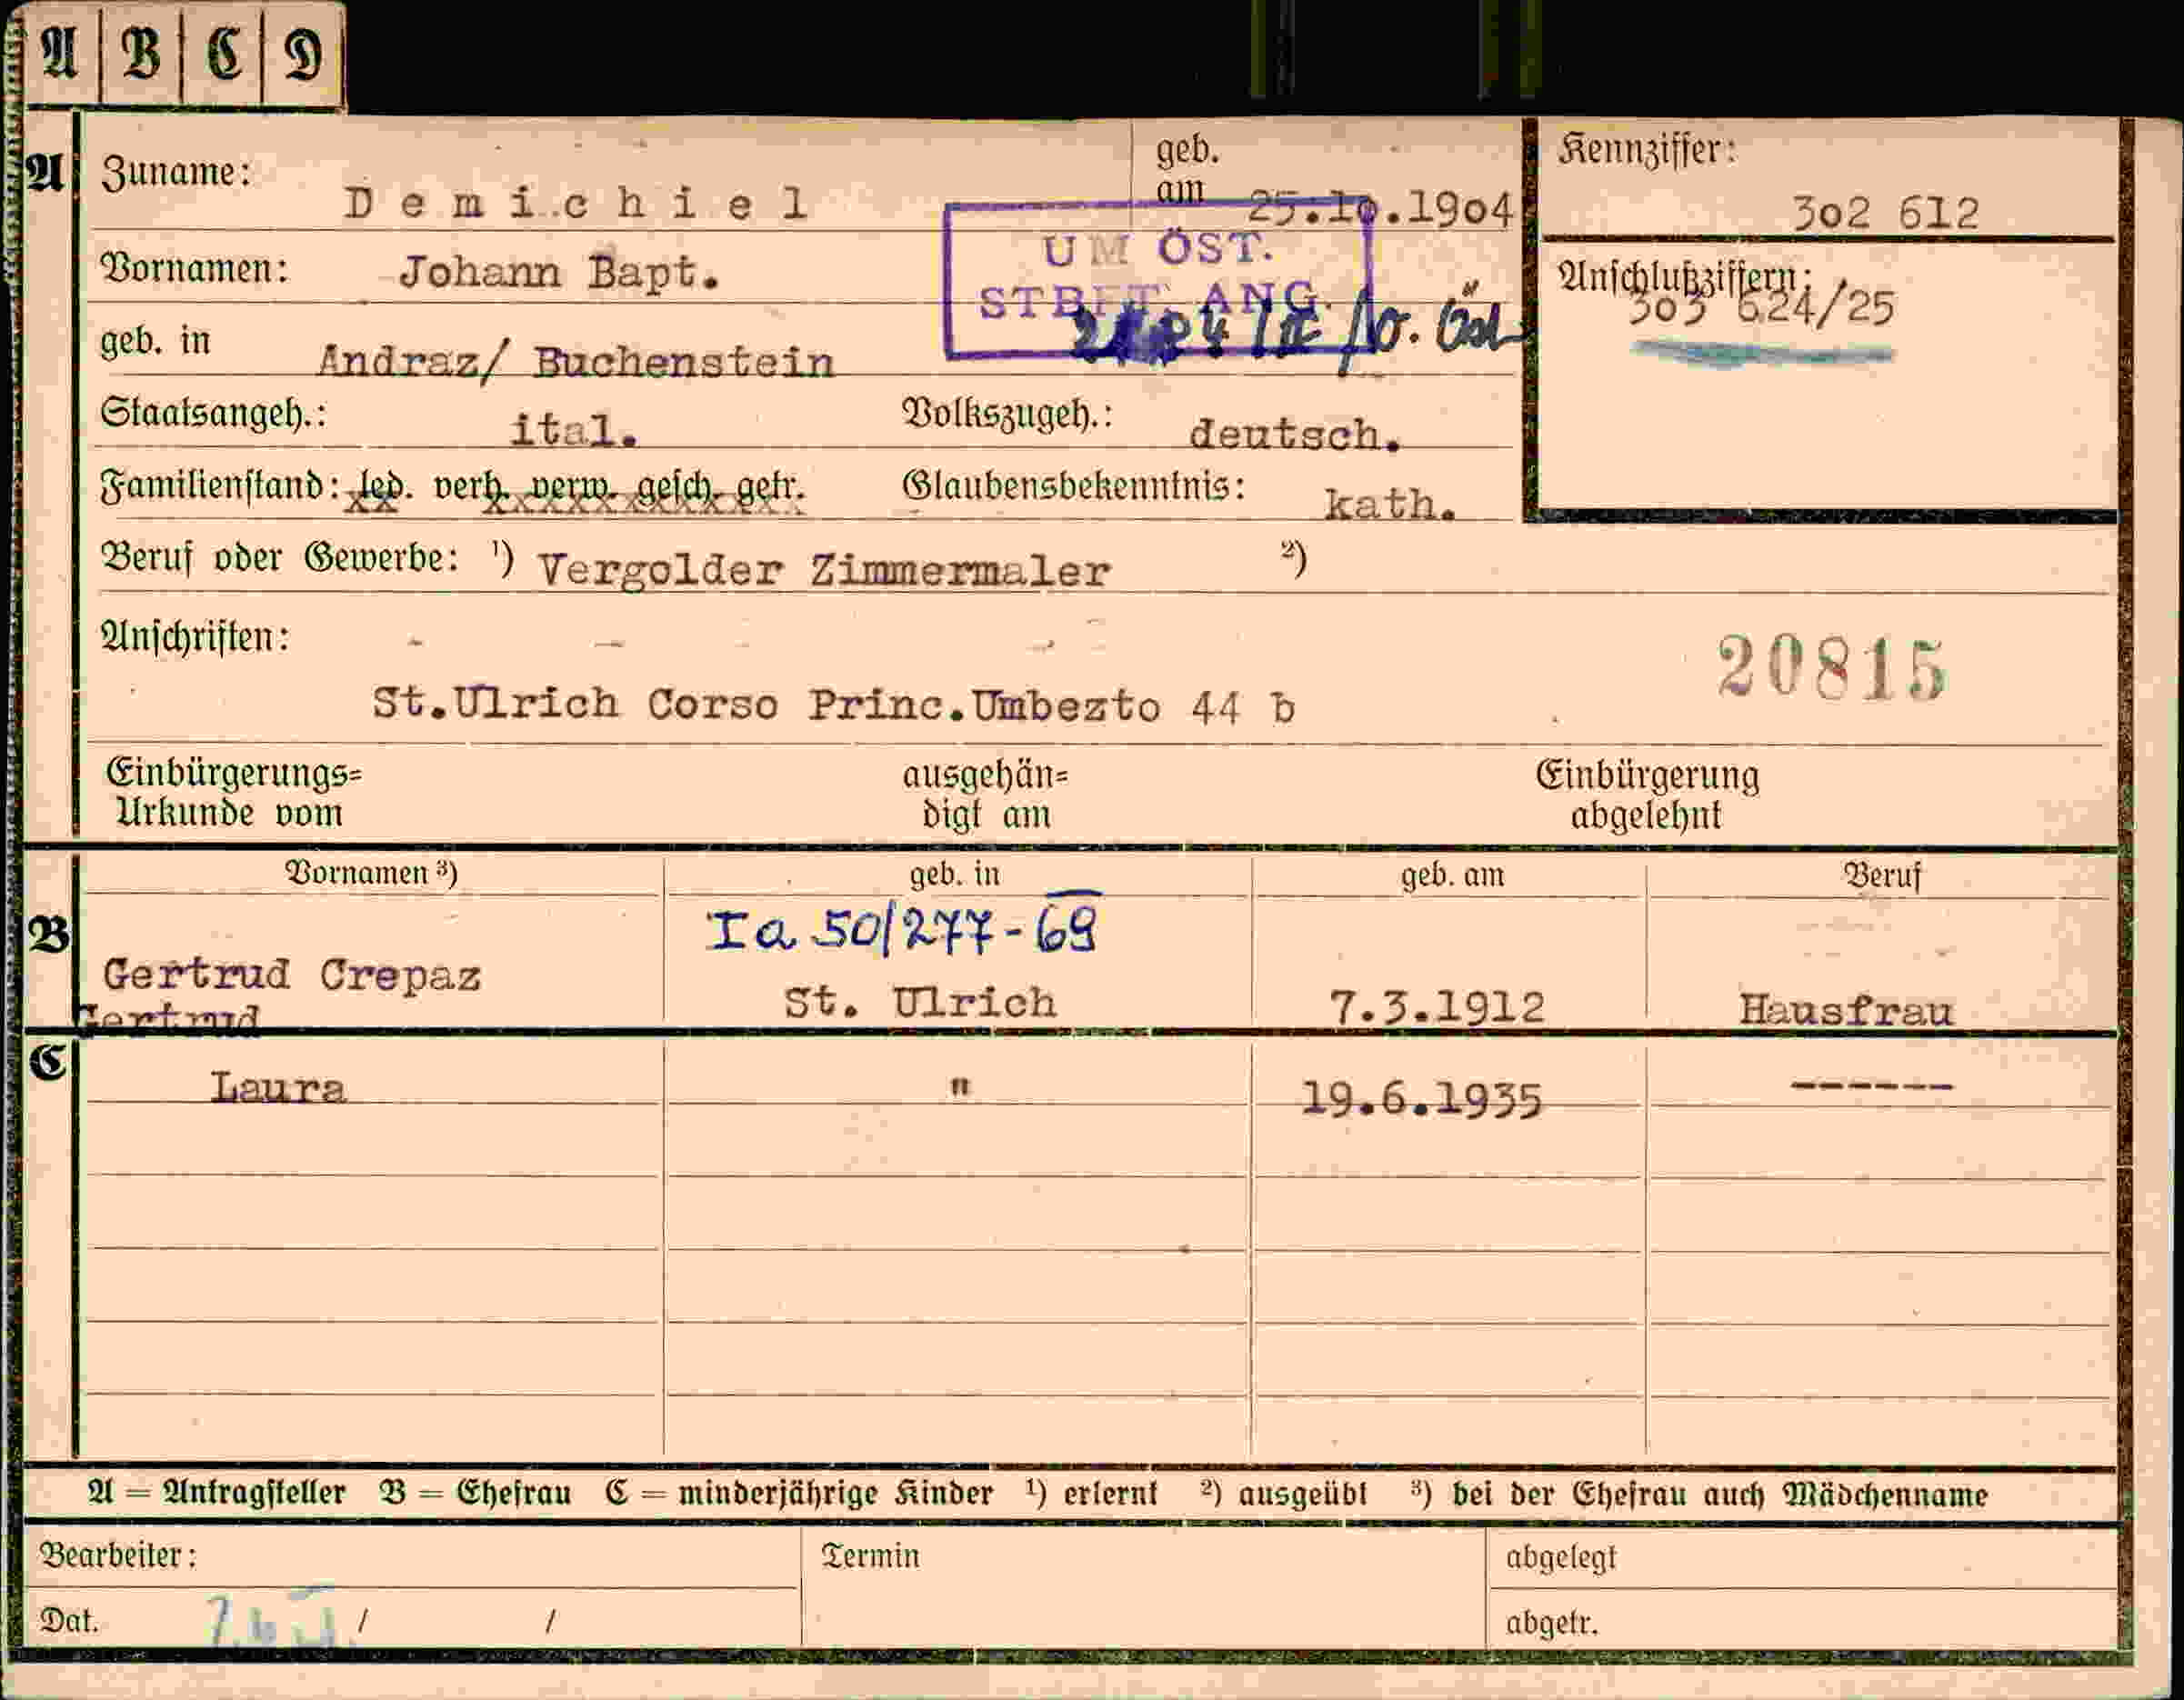 A B C D
A Zuname: Demichiel geb. am 25.10.1904 Kennziffer: 302 612
Vornamen: Johann Bapt. UM ÖST. Anschlußziffern: 303 624/25
STBET. ANG.
geb. in Andraz/ Buchenstein
Staatsangeh.: ital. Volkszugeh.: deutsch.
Familienstand: led. verh. verw. gesch. getr. Glaubensbekenntnis: kath.
Beruf oder Gewerbe: ¹) Vergolder Zimmermaler ²)
Anschriften: 20815
St.Ulrich Corso Princ.Umbezto 44 b
Einbürgerungs= ausgehän= Einbürgerung
Urkunde vom digt am abgelehnt
Vornamen ³) geb. in geb. am Beruf
B Ia 50/277-69
Gertrud Crepaz St. Ulrich 7.3.1912 Hausfrau
Gertrud
C Laura " 19.6.1935 ------
A = Antragsteller B = Ehefrau C = minderjährige Kinder ¹) erlernt ²) ausgeübt ³) bei der Ehefrau auch Mädchenname
Bearbeiter: Termin abgelegt
Dat. / / abgetr.